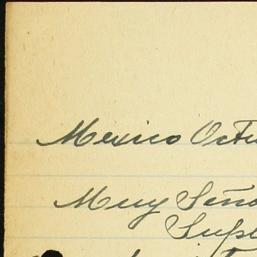 Mexico Octu
Muy Seño
Supl